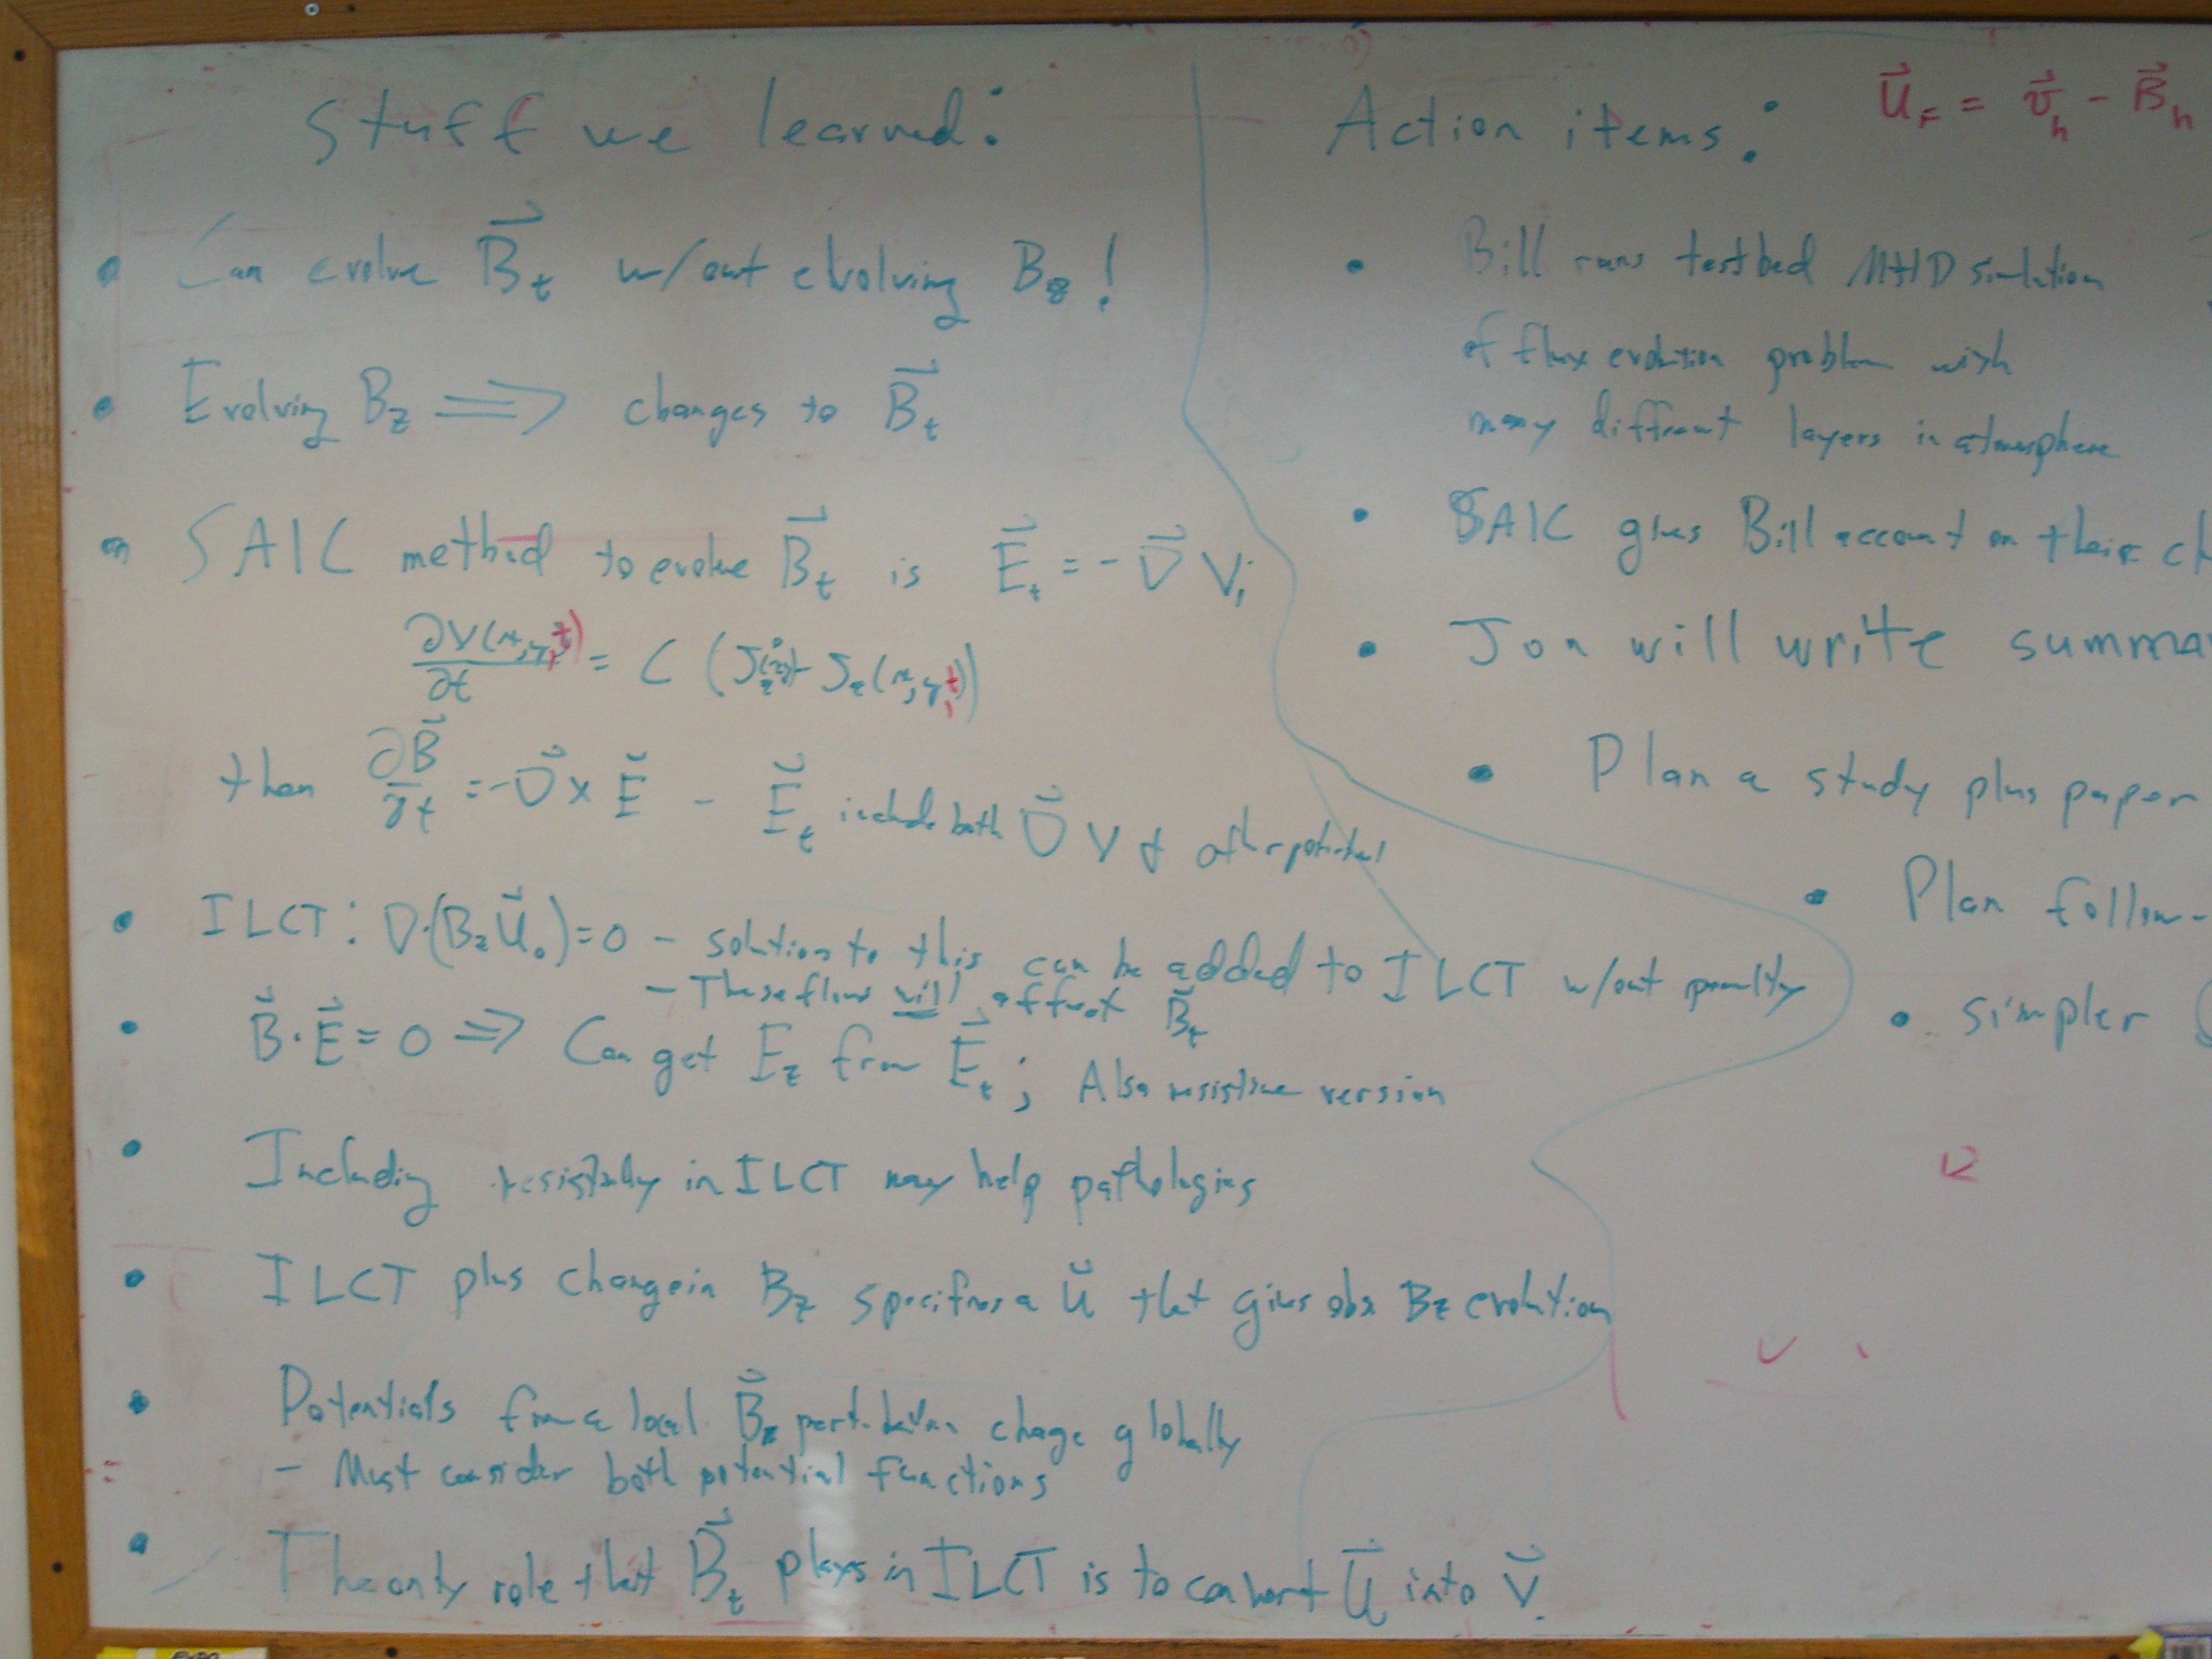 Stuff we learned:
• Can evolve B⃗_t w/out evolving B_z!
• Evolving B_z ⟹ changes to B⃗_t
• SAIC method to evolve B⃗_t is E⃗_t = -∇⃗ V;
∂V(x,y,t)/∂t = C (J_z - J_z(x,y,t))
then ∂B⃗/∂t = -∇⃗ × E⃗ - E⃗_t include both ∇⃗V + other potential
• ILCT: ∇·(B_z U⃗_0) = 0 - solution to this can be added to ILCT w/out penalty
- These flows will affect B⃗_t
• B⃗·E⃗ = 0 ⟹ Can get E_z from E⃗_t; Also resistive version
• Including resistivity in ILCT may help pathologies
• ILCT plus change in B_z specifies a u⃗ that gives obs B_z evolution
• Potentials from a local B⃗_z perturbation change globally
- Must consider both potential functions
• The only role that B⃗_t plays in ILCT is to convert U⃗ into V⃗.
Action items:
U⃗_F = v⃗_h - B⃗_h
• Bill runs testbed MHD simulation
of flux evolution problem with
many different layers in atmosphere
• SAIC gives Bill account on their cl
• Jon will write summa
• Plan a study plus paper
• Plan follow-
• simpler